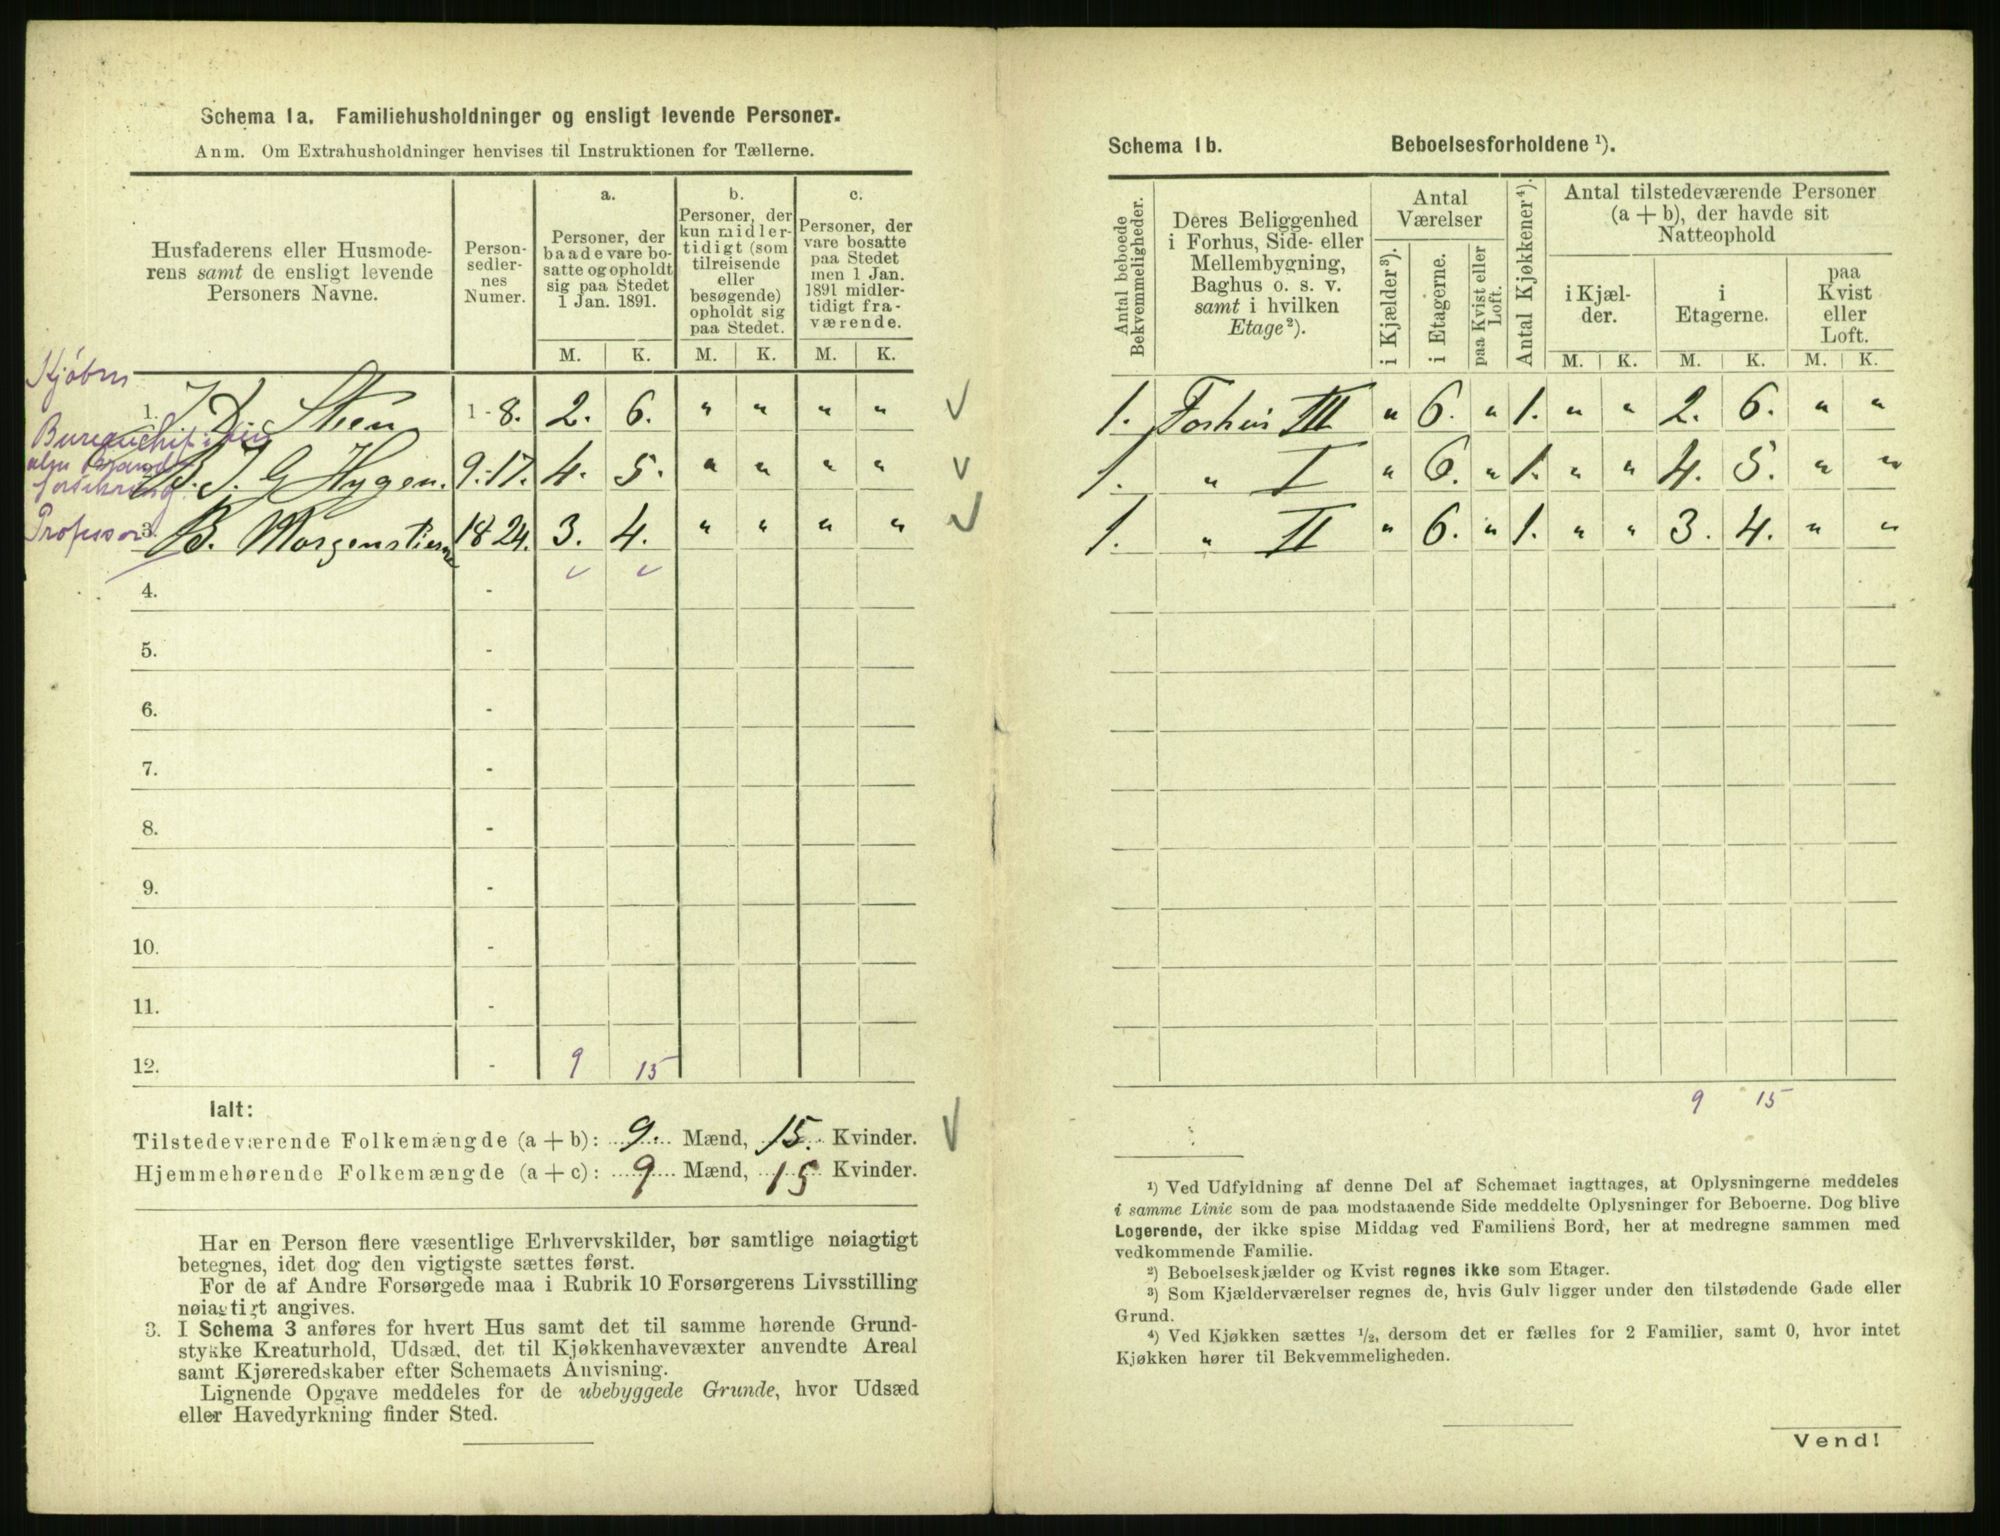 Schema 1a. Familiehusholdninger og ensligt levende Personer.
Anm. Om Extrahusholdninger henvises til Instruktionen for Tællerne.
Husfaderens eller Husmode-
rens samt de ensligt levende
Personers Navne.
Person-
sedler-
nes
Numer.
a.
Personer, der
baade vare bo-
satte og opholdt
sig paa Stedet
1 Jan. 1891.
b.
Personer, der
kun midler-
tidigt (som
tilreisende
eller
besøgende)
opholdt sig
paa Stedet.
c.
Personer, der
vare bosatte
paa Stedet
men 1 Jan.
1891 midler-
tidigt fra-
værende.
M. K. M. K. M. K.
Kjøbm
1. J. D. Steen 1-8. 2. 6. " " " " ✓
Bureauchef i den
alm Brand
forsikring
B. J. G Hygen. 9.-17. 4. 5. " " " " ✓
Professor
3. B. Morgenstierne 18 24. 3. 4. " " " " ✓
4. -
5. -
6. -
7. -
8. -
9. -
10. -
11. -
12. - 9 15
Ialt:
Tilstedeværende Folkemængde (a + b): 9. Mænd, 15. Kvinder. ✓
Hjemmehørende Folkemængde (a + c): 9 Mænd, 15 Kvinder.
Har en Person flere væsentlige Erhvervskilder, bør samtlige nøiagtigt
betegnes, idet dog den vigtigste sættes først.
For de af Andre Forsørgede maa i Rubrik 10 Forsørgerens Livsstilling
nøiagtigt angives.
3. I Schema 3 anføres for hvert Hus samt det til samme hørende Grund-
stykke Kreaturhold, Udsæd, det til Kjøkkenhavevæxter anvendte Areal
samt Kjøreredskaber efter Schemaets Anvisning.
Lignende Opgave meddeles for de ubebyggede Grunde, hvor Udsæd
eller Havedyrkning finder Sted.
Schema 1b. Beboelsesforholdene ¹).
Antal beboede
Bekvemmeligheder.
Deres Beliggenhed
i Forhus, Side- eller
Mellembygning,
Baghus o. s. v.
samt i hvilken
Etage ²).
Antal
Værelser
i Kjælder ³).
i Etagerne.
paa Kvist eller
Loft.
Antal Kjøkkener ⁴).
Antal tilstedeværende Personer
(a + b), der havde sit
Natteophold
i Kjæl-
der.
i
Etagerne.
paa
Kvist
eller
Loft.
M. K. M. K. M. K.
1. Forhus III " 6. " 1. " " 2. 6. " "
1. " I " 6. " 1. " " 4. 5. " "
1. " II " 6. " 1. " " 3. 4. " "
9 15
¹) Ved Udfyldning af denne Del af Schemaet iagttages, at Oplysningerne meddeles
i samme Linie som de paa modstaaende Side meddelte Oplysninger for Beboerne. Dog blive
Logerende, der ikke spise Middag ved Familiens Bord, her at medregne sammen med
vedkommende Familie.
²) Beboelseskjælder og Kvist regnes ikke som Etager.
³) Som Kjælderværelser regnes de, hvis Gulv ligger under den tilstødende Gade eller
Grund.
⁴) Ved Kjøkken sættes ½, dersom det er fælles for 2 Familier, samt 0, hvor intet
Kjøkken hører til Bekvemmeligheden.
Vend!